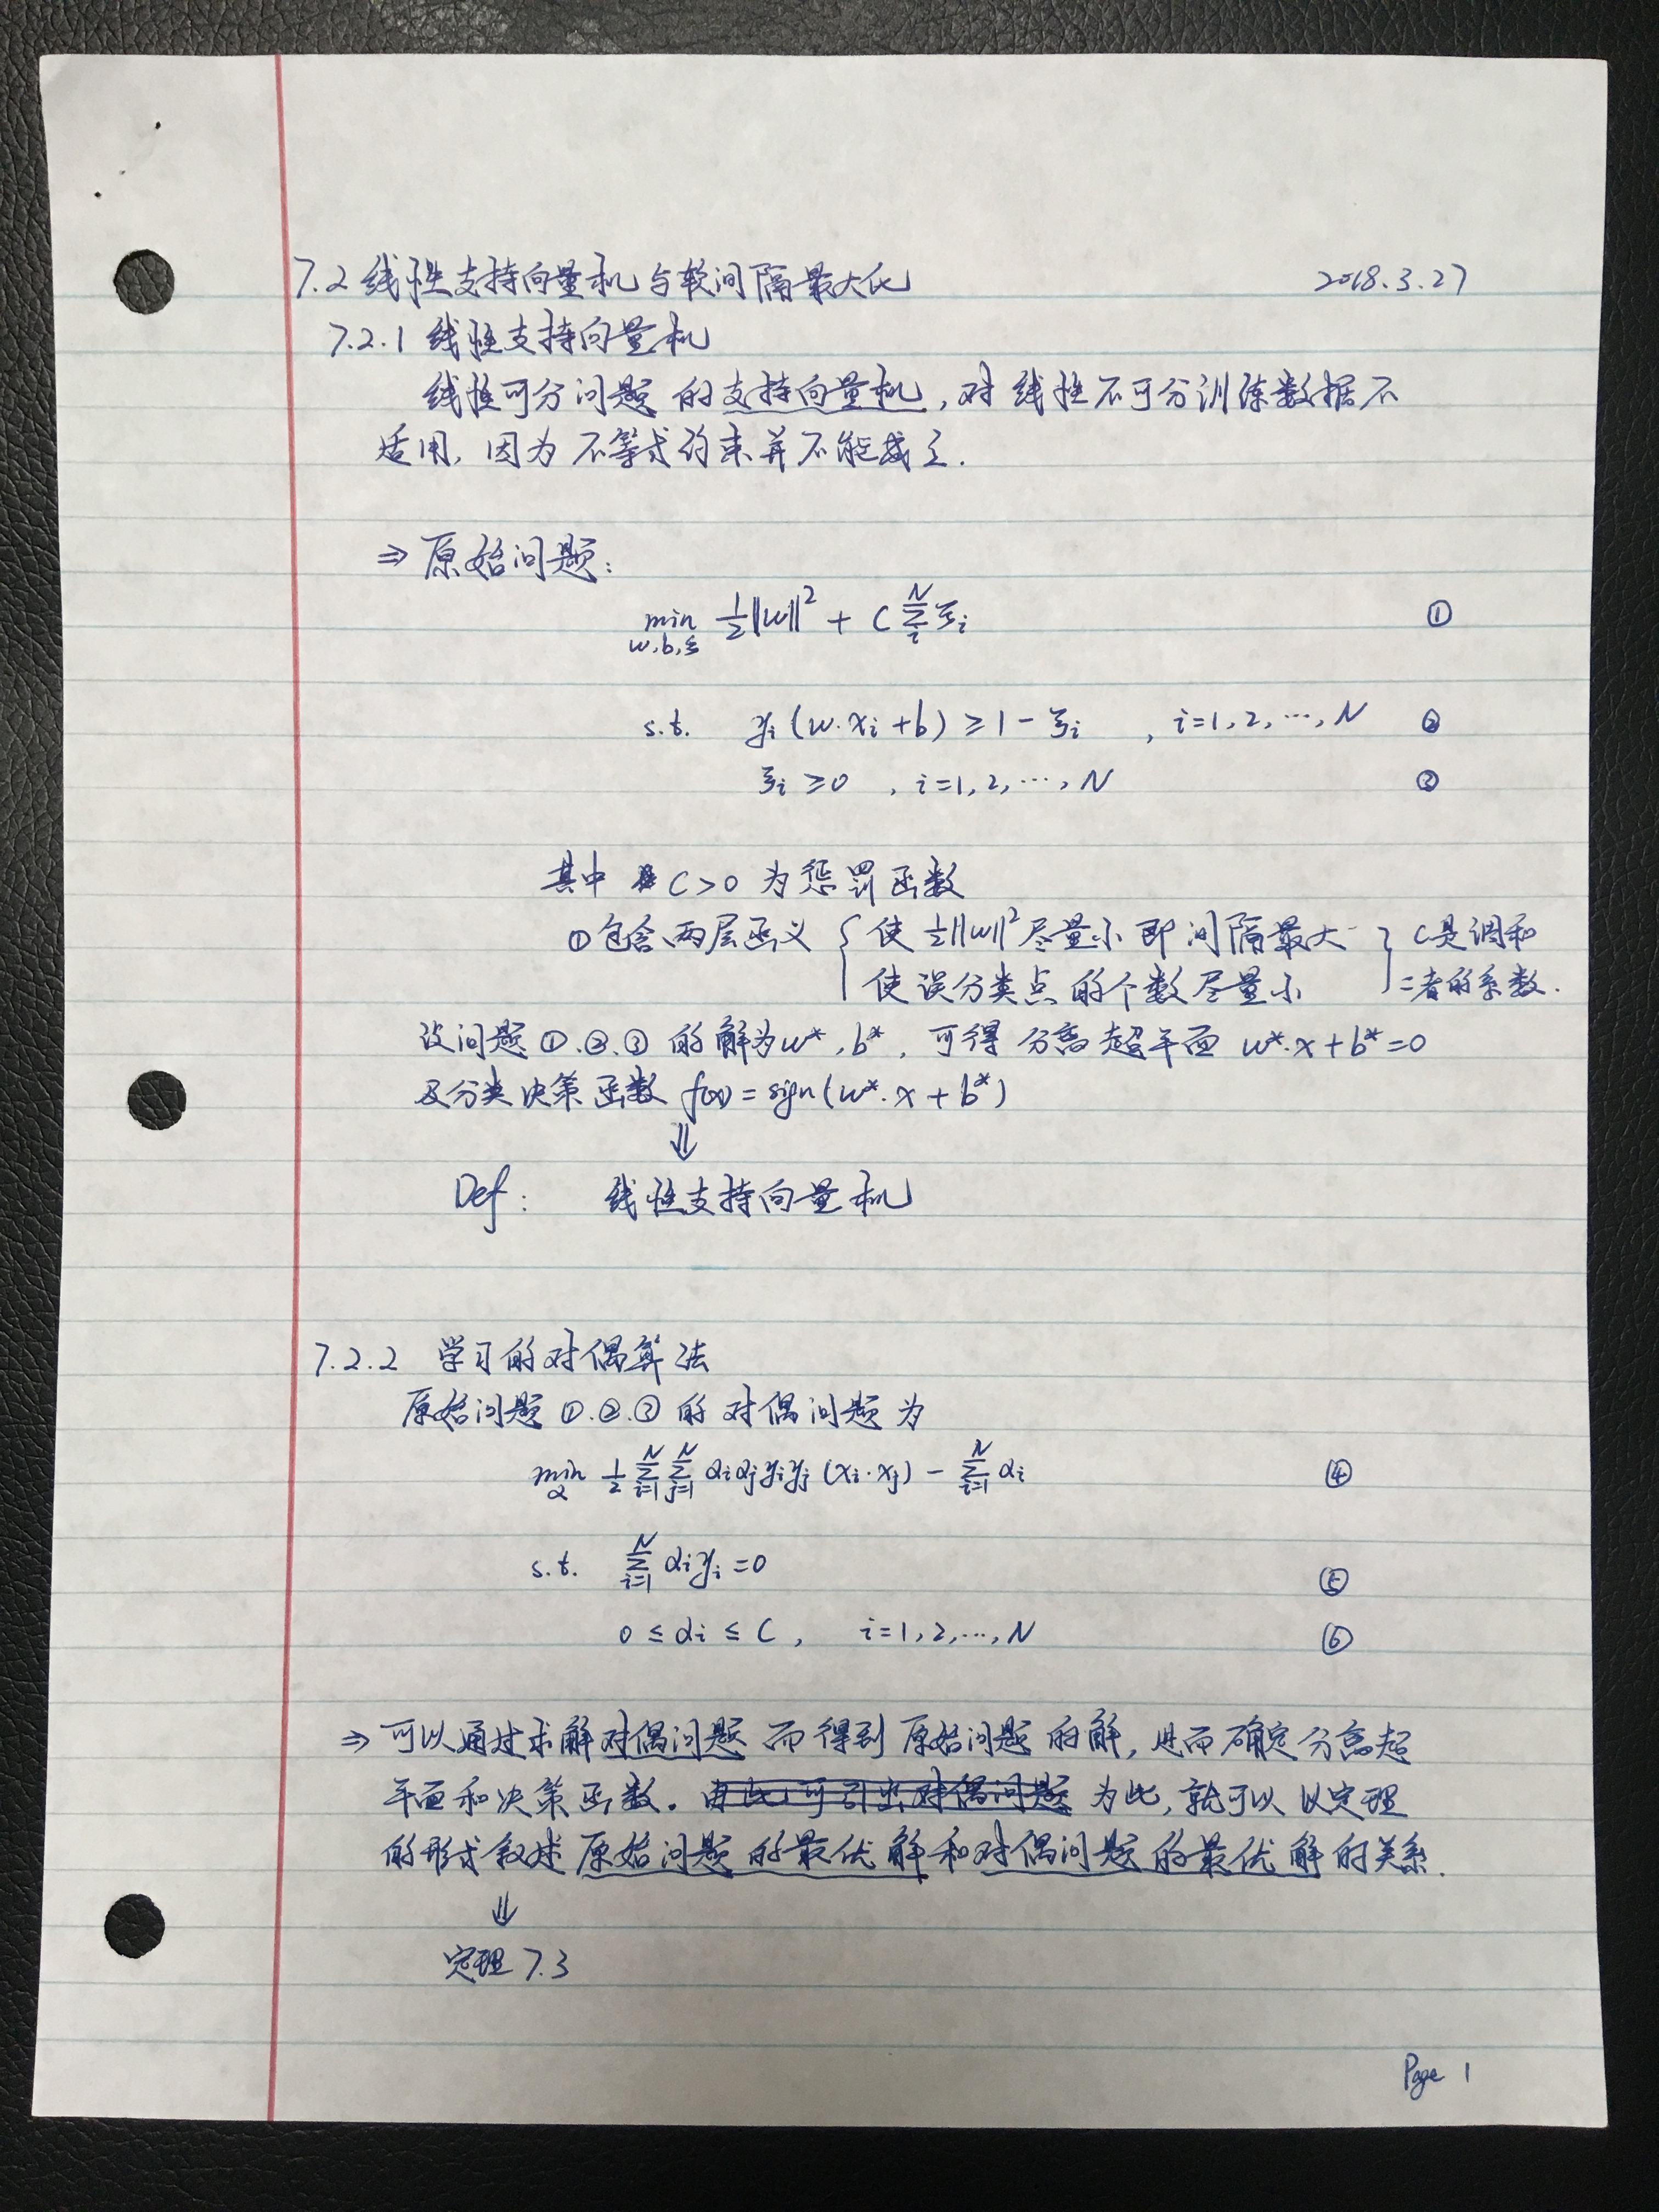 7.2 线性支持向量机与软间隔最大化 2018.3.27
7.2.1 线性支持向量机
线性可分问题的支持向量机,对线性不可分训练数据不
适用,因为不等式约束并不能成立.
⇒ 原始问题:
min_{w,b,ξ} 1/2||w||² + C Σ_i^N ξi ①
s.t. yi(w·xi+b) ≥ 1-ξi , i=1,2,…,N ②
ξi ≥ 0 , i=1,2,…,N ③
其中 C>0 为惩罚函数
①包含两层函义 { 使 1/2||w||² 尽量小即间隔最大 } C是调和
使误分类点的个数尽量小 二者的系数.
设问题①.②.③的解为w*,b*,可得分离超平面 w*·x+b*=0
及分类决策函数 f(x)=sign(w*·x+b*)
⇓
Def: 线性支持向量机
7.2.2 学习的对偶算法
原始问题①.②.③的对偶问题为
min_α 1/2 Σ_{i=1}^N Σ_{j=1}^N αiαjyiyj(xi·xj) - Σ_{i=1}^N αi ④
s.t. Σ_{i=1}^N αiyi=0 ⑤
0 ≤ αi ≤ C, i=1,2,…,N ⑥
⇒ 可以通过求解对偶问题而得到原始问题的解,进而确定分离超
平面和决策函数. 由此,可引出对偶问题 为此,就可以以定理
的形式叙述原始问题的最优解和对偶问题的最优解的关系.
⇓
定理7.3
Page 1